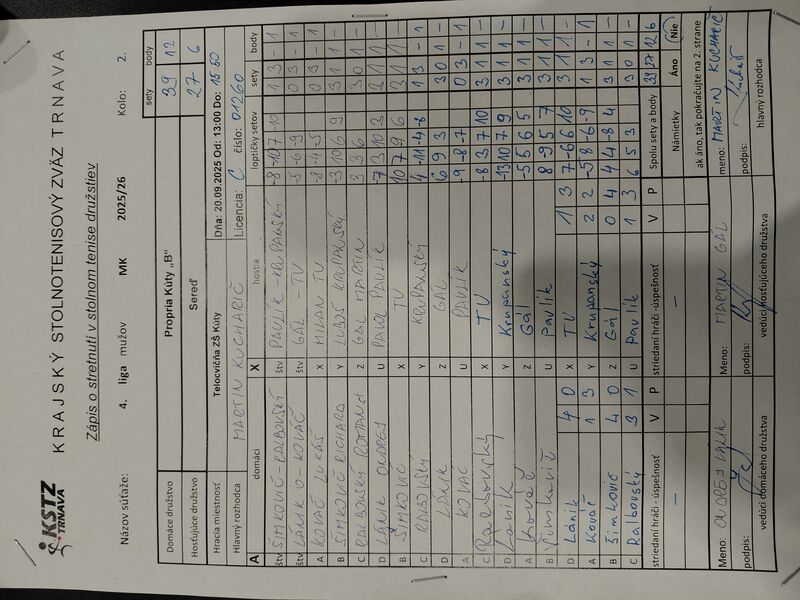 KSTZ TRNAVA
KRAJSKÝ STOLNOTENISOVÝ ZVÄZ TRNAVA
Zápis o stretnutí v stolnom tenise družstiev
Názov súťaže: 4. liga mužov MK 2025/26 Kolo: 2.
sety body
Domáce družstvo Propria Kúty „B" 39 12
Hosťujúce družstvo Sereď 27 6
Hracia miestnosť Telocvičňa ZŠ Kúty Dňa: 20.09.2025 Od: 13:00 Do: 15:50
Hlavný rozhodca MARTIN KUCHARIČ Licencia: C číslo: 01260
A domáci X hostia loptičky setov sety body
štv ŠIMKOVIČ - štv PAVLÍK - KRUPANSKÝ -8 -10 7 -10 1 3 - 1
štv LÁNIK O - KOVÁČ štv GÁL - TV -5 -6 -9 0 3 - 1
A KOVÁČ LUKÁŠ X MILAN TV -8 -4 -5 0 3 - 1
B ŠIMKOVIČ RICHARD Y ĽUBOŠ KRUPANSKÝ -3 10 6 9 3 1 1 -
C RALBOVSKÝ Z GÁL MARTIN 3 3 6 3 0 1 -
D LÁNIK ONDREJ U PAVOL PAVLÍK -7 3 10 3 3 1 1 -
B ŠIMKOVIČ X TV 3 1 1 -
C RALBOVSKÝ Y KRUPANSKÝ 4 -11 -4 -8 1 3 - 1
D LÁNIK Z GÁL 6 9 3 3 0 1 -
A KOVÁČ U PAVLÍK -9 -8 -7 0 3 - 1
C Ralbovský X TV -8 3 7 10 3 1 1 -
D Lánik Y Krupanský -13 10 7 9 3 1 1 -
A Kováč Z Gál -5 5 6 5 3 1 1 -
B Šimkovič U Pavlík 8 -9 5 7 3 1 1 -
D Lánik 4 0 X TV 1 3 7 -6 6 10 3 1 1 -
A Kováč 1 3 Y Krupanský 2 2 -5 8 -6 -9 1 3 - 1
B Šimkovič 4 0 Z Gál 0 4 4 4 -8 4 3 1 1 -
C Ralbovský 3 1 U Pavlík 1 3 6 5 3 3 0 1 -
striedaní hráči - úspešnosť V P striedaní hráči -úspešnosť V P Spolu sety a body 39 27 12 6
— — Námietky Áno Nie
ak áno, tak pokračujte na 2. strane
Meno: ONDREJ LÁNIK Meno: MARTIN GÁL meno: MARTIN KUCHARIČ
podpis: podpis: podpis:
vedúci domáceho družstva vedúci hosťujúceho družstva hlavný rozhodca